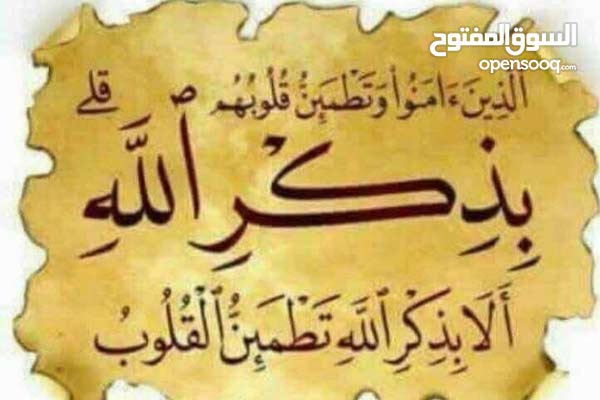 السوق المفتوح
opensooq.com
الَّذِينَ ءَامَنُوا۟ وَتَطْمَئِنُّ قُلُوبُهُم
بِذِكْرِ ٱللَّهِ ۗ
أَلَا بِذِكْرِ ٱللَّهِ تَطْمَئِنُّ ٱلْقُلُوبُ